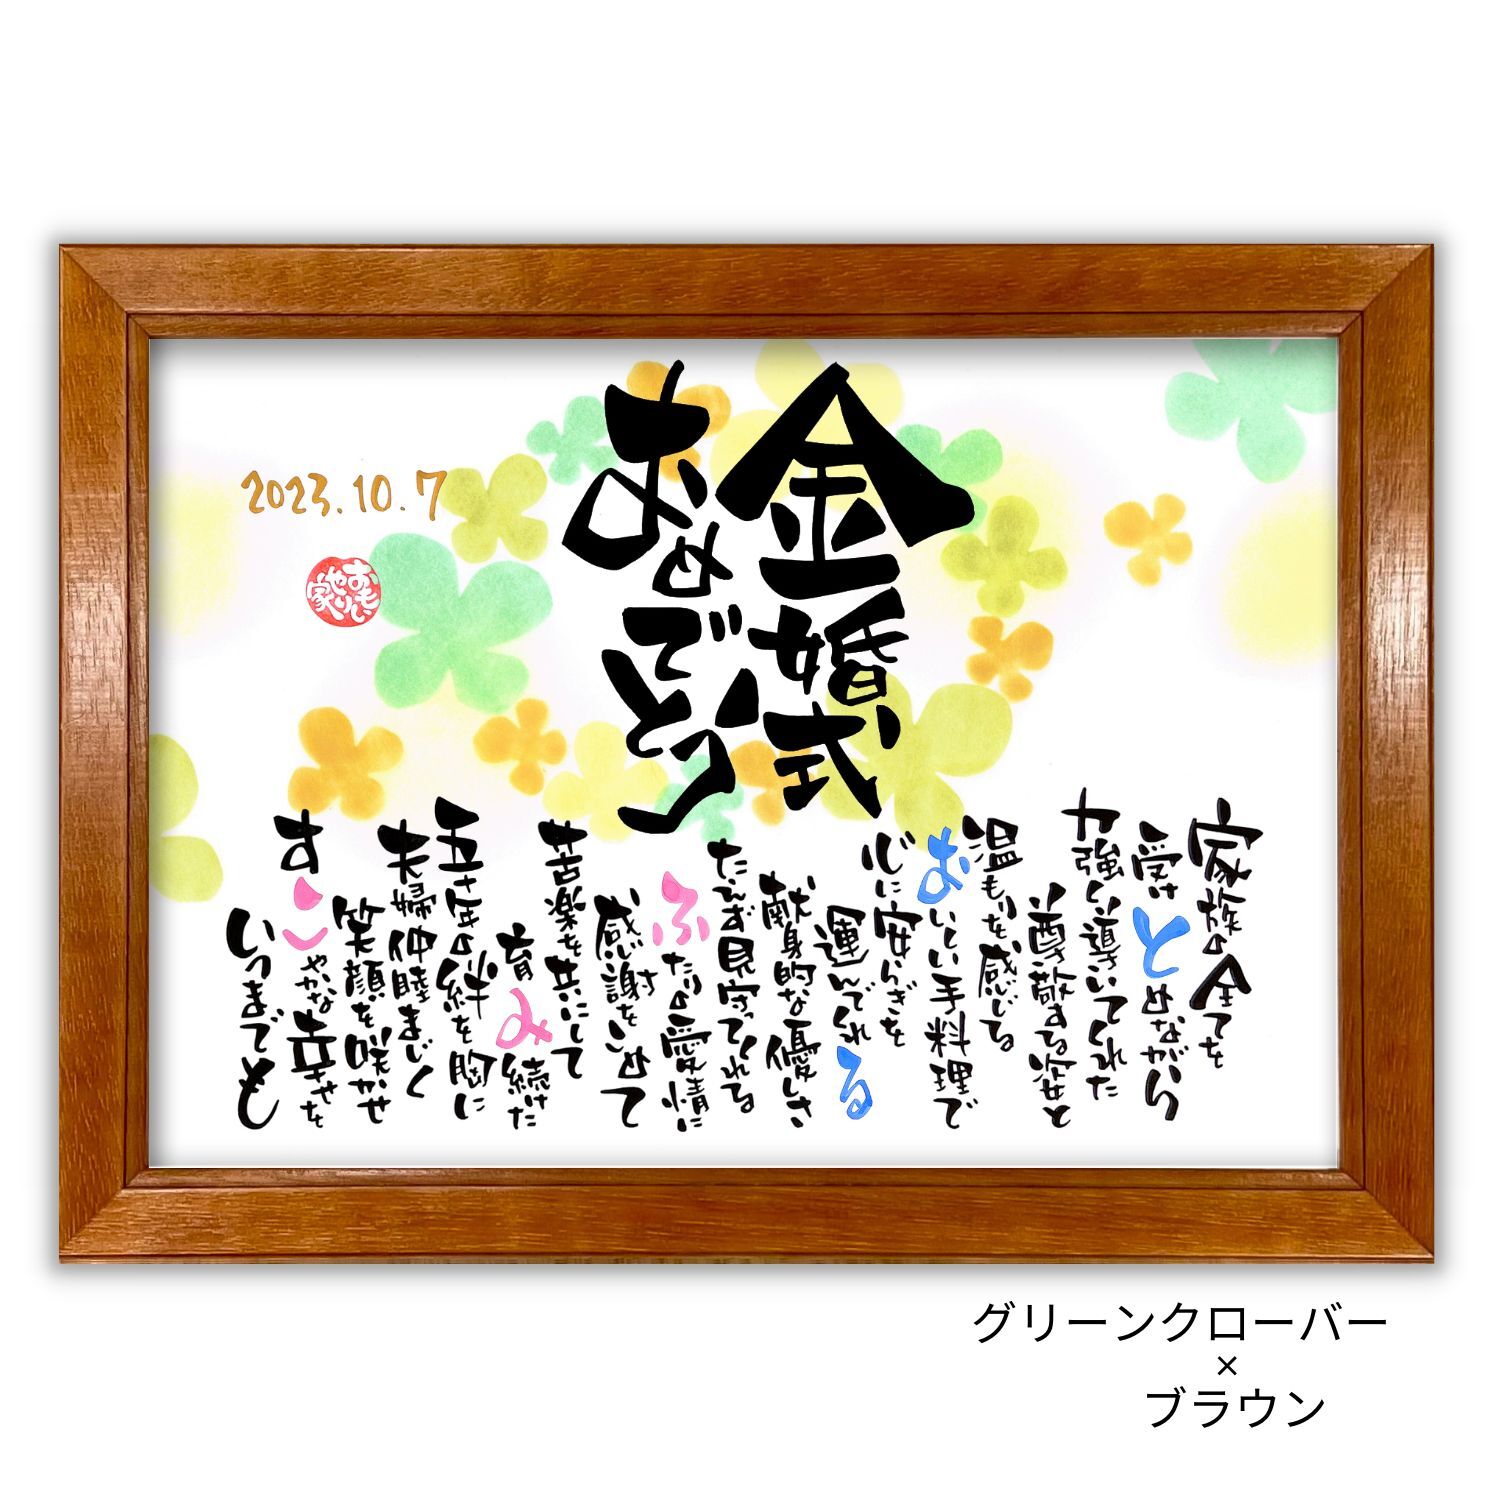 金婚式
おめでとう
2023.10.7
おもい
やり
家
家族の全てを
受けとめながら
力強く導いてくれた
尊敬する姿と
温もりを感じる
おいしい手料理で
心に安らぎを
運んでくれる
献身的な優しさ
たえず見守ってくれてる
ふたりの愛情に
感謝をこめて
苦楽を共にして
育み続けた
五十年の絆を胸に
夫婦仲睦まじく
笑顔を咲かせ
すこやかな幸せを
いつまでも
グリーンクローバー
×
ブラウン